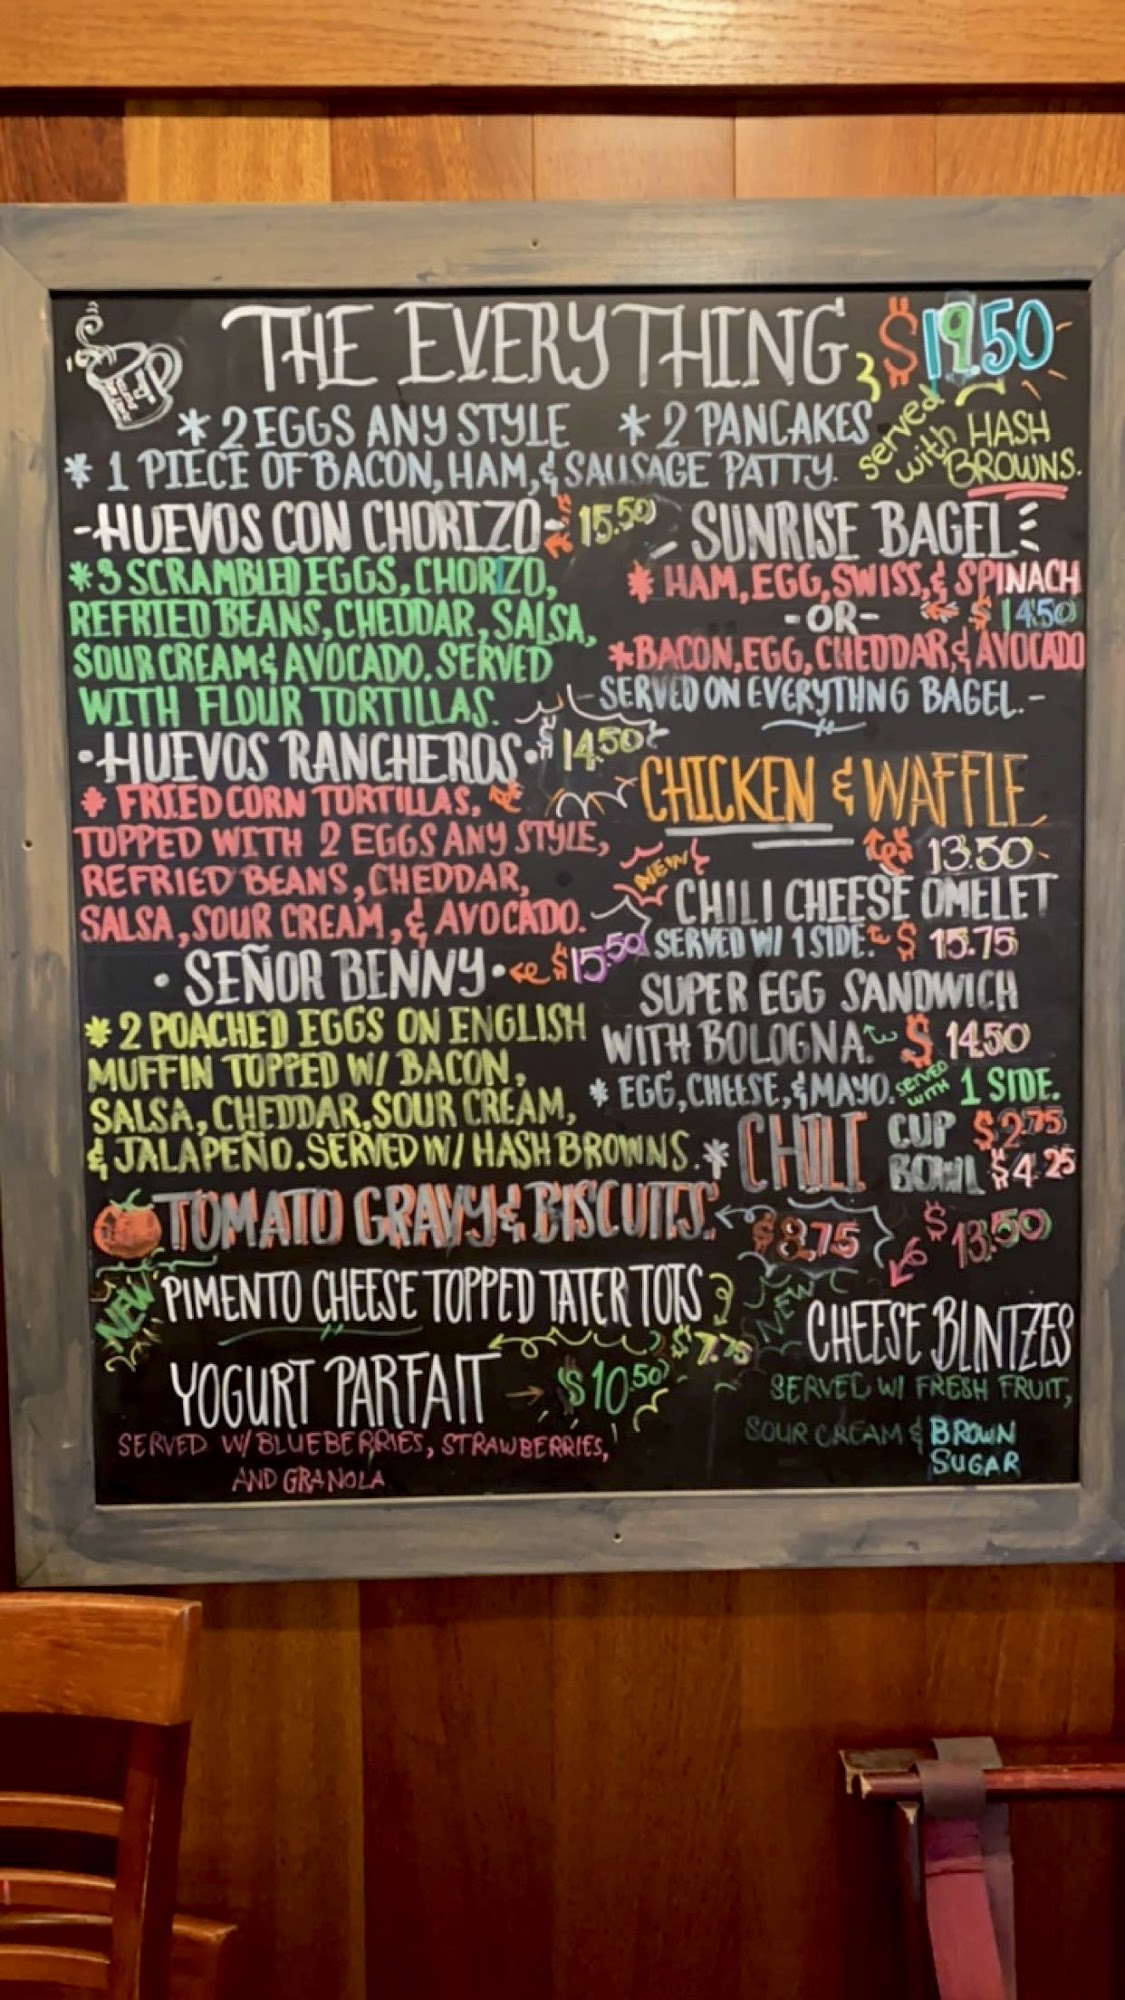 THE EVERYTHING $19.50
* 2 EGGS ANY STYLE * 2 PANCAKES
* 1 PIECE OF BACON, HAM, & SAUSAGE PATTY.
served with HASH BROWNS.
-HUEVOS CON CHORIZO- 15.50
* 3 SCRAMBLED EGGS, CHORIZO,
REFRIED BEANS, CHEDDAR, SALSA,
SOUR CREAM & AVOCADO. SERVED
WITH FLOUR TORTILLAS.
• HUEVOS RANCHEROS • $14.50
* FRIED CORN TORTILLAS,
TOPPED WITH 2 EGGS ANY STYLE,
REFRIED BEANS, CHEDDAR,
SALSA, SOUR CREAM, & AVOCADO.
• SEÑOR BENNY • $15.50
* 2 POACHED EGGS ON ENGLISH
MUFFIN TOPPED W/ BACON,
SALSA, CHEDDAR, SOUR CREAM,
& JALAPEÑO. SERVED W/ HASH BROWNS.
SUNRISE BAGEL
* HAM, EGG, SWISS, & SPINACH
-OR- $14.50
* BACON, EGG, CHEDDAR, & AVOCADO
- SERVED ON EVERYTHNG BAGEL. -
CHICKEN & WAFFLE
13.50
NEW
CHILI CHEESE OMELET
SERVED W/ 1 SIDE. $15.75
SUPER EGG SANDWICH
WITH BOLOGNA. $14.50
* EGG, CHEESE, & MAYO. SERVED WITH 1 SIDE.
* CHILI CUP $2.75
BOWL $4.25
TOMATO GRAVY & BISCUITS. $8.75
NEW PIMENTO CHEESE TOPPED TATER TOTS
$7.75
YOGURT PARFAIT → $10.50
SERVED W/ BLUEBERRIES, STRAWBERRIES,
AND GRANOLA
$13.50
NEW
CHEESE BLINTZES
SERVED W/ FRESH FRUIT,
SOUR CREAM & BROWN
SUGAR